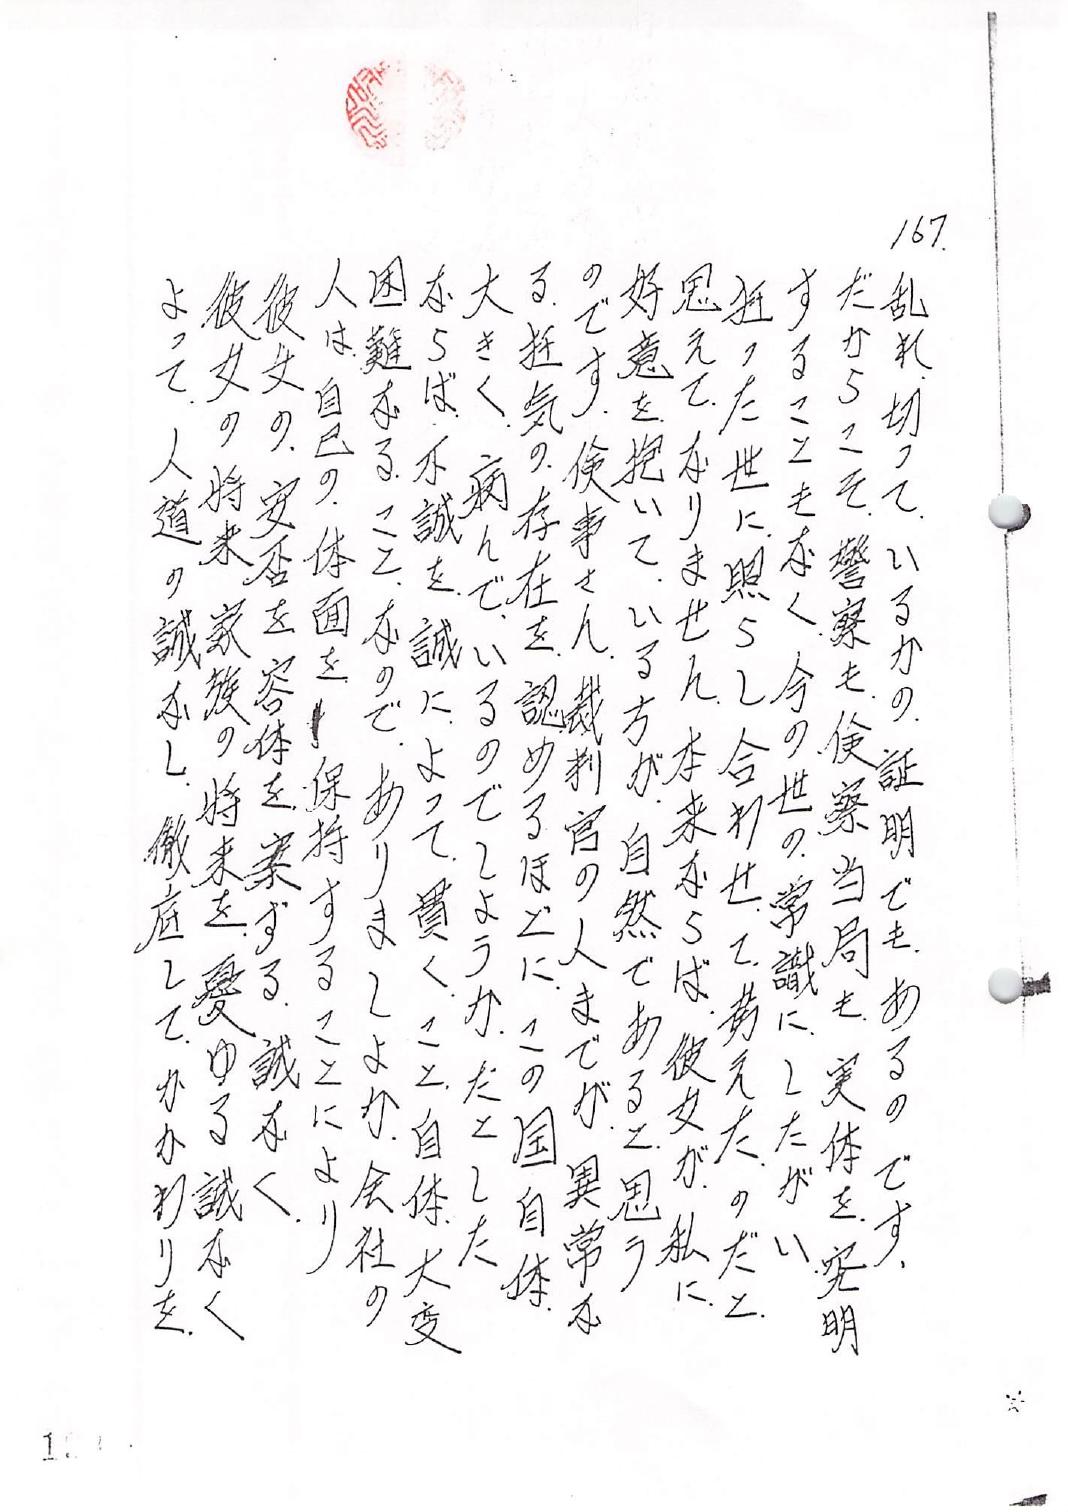 167.
乱れ、切って、いるかの、証明でも、あるのです、
だからこそ、警察も、検察当局も、実体を、究明
することもなく、今の世の、常識に、したがい、
狂った世に、照らし合わせ、て、考えた、のだと、
思えて、なりません、本来ならば、彼女が、私に、
好意を、抱いて、いる方が、自然であると、思う
のです、検事さん、裁判官の人までが、異常な
る、狂気の、存在を、認めるほどに、この国自体、
大きく、病んで、いるのでしょうか、だとした
ならば、不誠を、誠に、よって、貫く、こと、自体、大変
困難なる、こと、なので、ありましよが、会社の
人は、自己の、体面を、保持することにより
彼女の、安否を、容体を、案ずる、誠なく、
彼女の将来、家族の将来を、憂ゆる誠なく
よって、人道の誠なし、徹底して、かかわりを、
1